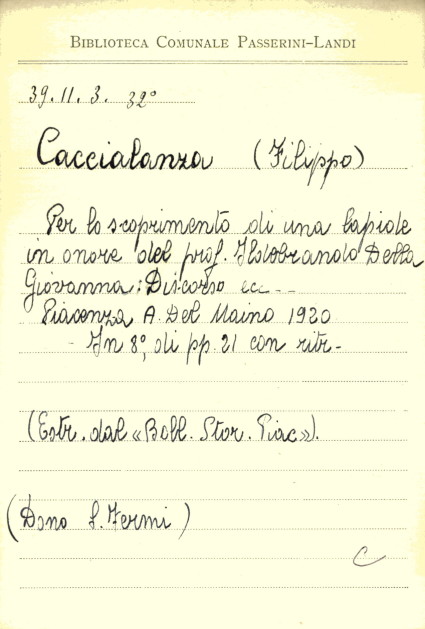 BIBLIOTECA COMUNALE PASSERINI-LANDI
39.11.3. 32°
Caccialanza (Filippo)
Per lo scoprimento di una lapide
in onore del prof. Ildobrando Della
Giovanna: Discorso ecc ---
Piacenza A. Del Maino 1920
- In 8°, di pp. 21 con ritr-
(Estr. dal «Boll. Stor. Piac»).
(Dono S. Fermi)
C